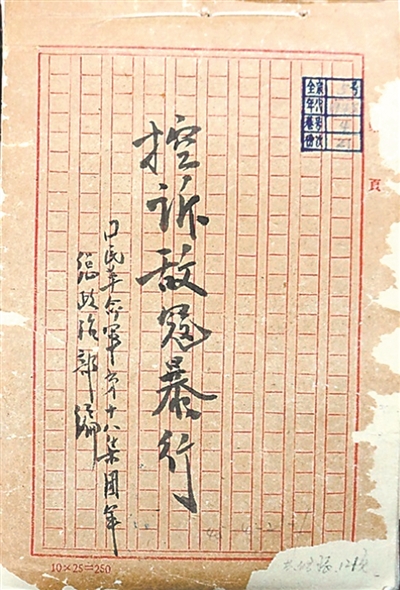 控诉敌寇暴行
口民革命军第十八集团军
总政治部编
全宗号
年代
卷号
頁
10×25=250